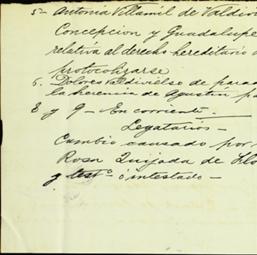 5- Antonia Villamil de Valdivi
Concepcion y Guadalupe
relativa al derecho hereditario
protocolizarse
6. Dolores Valdivielso de
la herencia de Agustin
8 y 9 - En corriente.
Legatarios -
Cambio causado por
Rosa Quijada de
y test.º ó intestado -